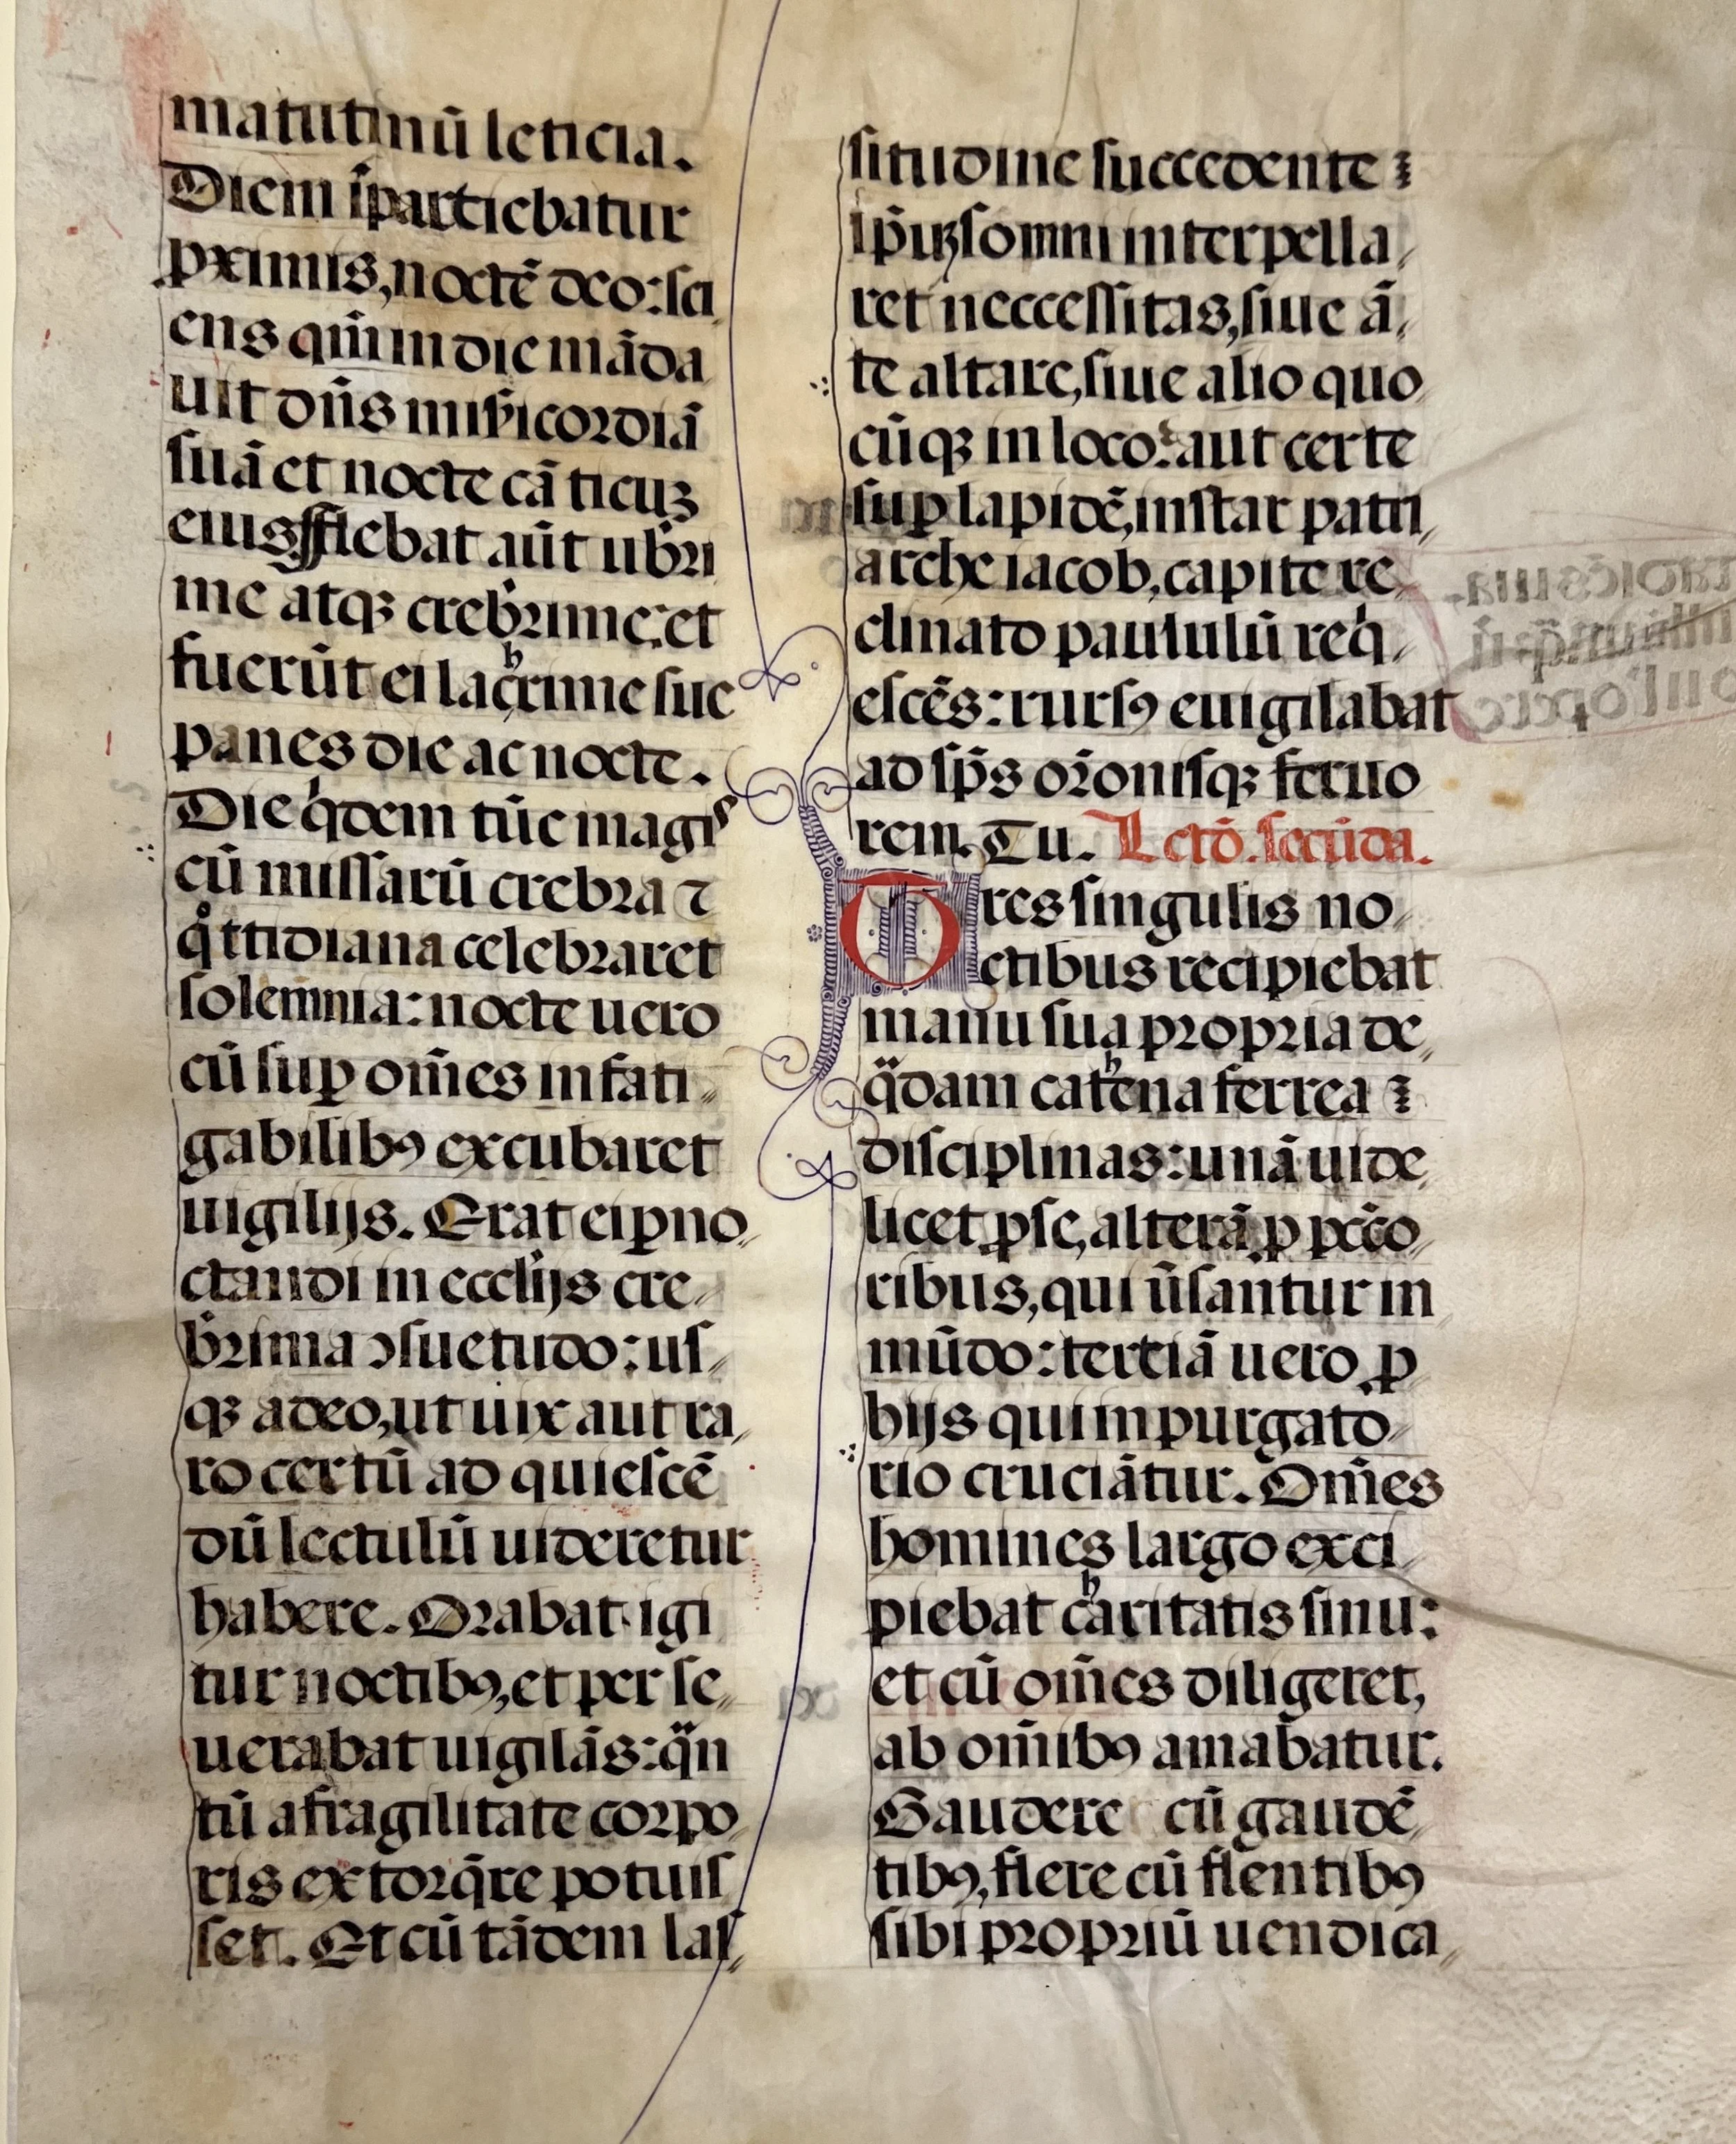 matutinū leticia.
Diem īpartiebatur
ꝓximis, noctē deo: sci
ens qm̄ in die māda
uit dn̄s mīẜicordiā
suā et nocte cāticuꝫ
eius flebat aūt ub̄ri
me atqꝫ creb̄rime: et
fuerūt ei lachrime sue
panes die ac nocte.
Die qͥdem tūc magiˢ
cū missarū crebra ⁊
qͦttidiana celebraret
solemnia: nocte uero
cū suꝑ om̄es infati⸗
gabilibꝯ excubaret
uigilijs. Erat ei ꝑno⸗
ctandi in eccl̄ijs cre⸗
b̄rima ↄsuetudo: us⸗
qꝫ adeo, ut uix aut ra⸗
ro certū ad quiescē
dū lectulū uideretur
habere. Orabat igi
tur noctibꝯ, et per se⸗
uerabat uigilās: qᷓn
tū a fragilitate corpo⸗
ris extorq̄re potuis
set. Et cū tādem las⸗
situdine succedente
ip̄iꝰ somni interpella⸗
ret neccessitas, siue ā⸗
te altare, siue alio quo
cūqꝫ in loco: aut certe
suꝑ lapidē, instar patri⸗
arche iacob, capite re
clinato paululū reqͥ⸗
escēs: rursꝯ euigilabat
ad sp̄s or̄onisqꝫ feruo
rem. Tu. Lectō. secūda.
Tres singulis no⸗
ctibus recipiebat
manu sua propria de⸗
qᷓdam cathena ferrea
disciplinas: unā uide⸗
licet ꝓ se, alterā ꝓ pccō⸗
ribus, qui ūsantur in
mūdo: tertiā uero ꝓ
hijs qui in purgato⸗
rio cruciātur. Om̄es
homines largo exci⸗
piebat charitatis sinu:
et cū om̄es diligeret,
ab om̄ibꝯ amabatur.
Gaudere cū gaudē⸗
tibꝯ, flere cū flentibꝯ
sibi propriū uendica⸗